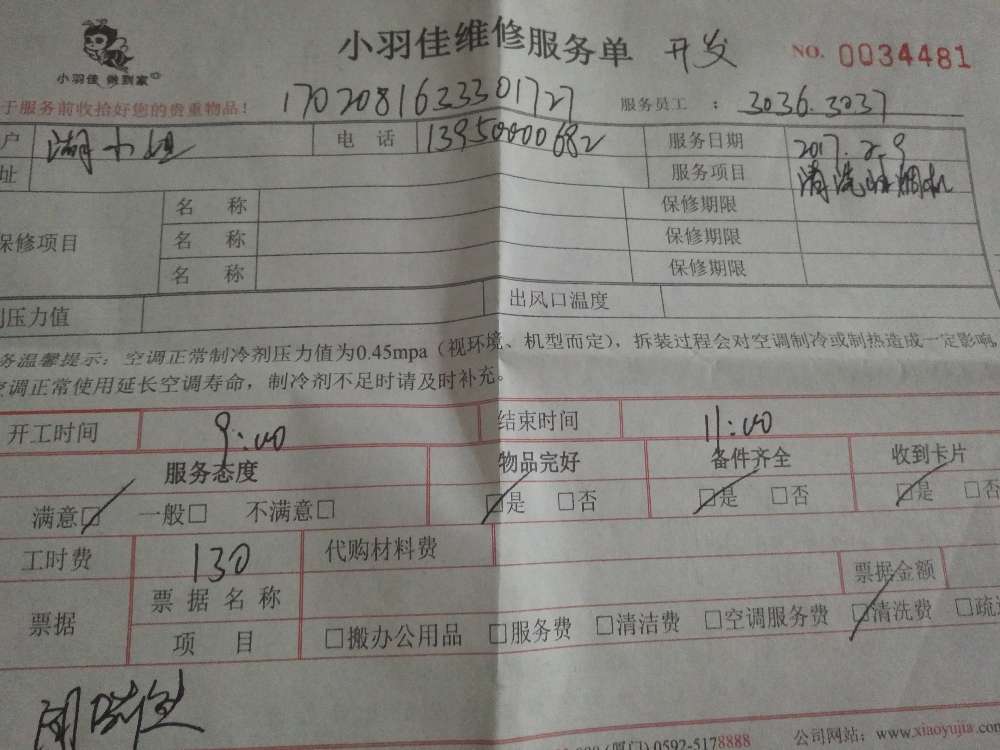 小羽佳维修服务单 开发 NO. 0034481
小羽佳 做到家
于服务前收拾好您的贵重物品! 17020816233301727 服务员工 : 3036.3037
户 电 话 13950000682 服务日期 2017.2.9
址 服务项目 清洗油烟机
保修项目 名 称 保修期限
名 称 保修期限
名 称 保修期限
压力值 出风口温度
务温馨提示: 空调正常制冷剂压力值为0.45mpa（视环境、机型而定），拆装过程会对空调制冷或制热造成一定影响,
空调正常使用延长空调寿命，制冷剂不足时请及时补充。
开工时间 9:00 结束时间 11:00
服务态度 物品完好 备件齐全 收到卡片
满意□ 一般□ 不满意□ □是 □否 □是 □否 □是 □否
工时费 130 代购材料费
票据 票据名称 票据金额
项 目 □搬办公用品 □服务费 □清洁费 □空调服务费 □清洗费 □疏
(厦门) 0592-5178888 公司网站: www.xiaoyujia.com